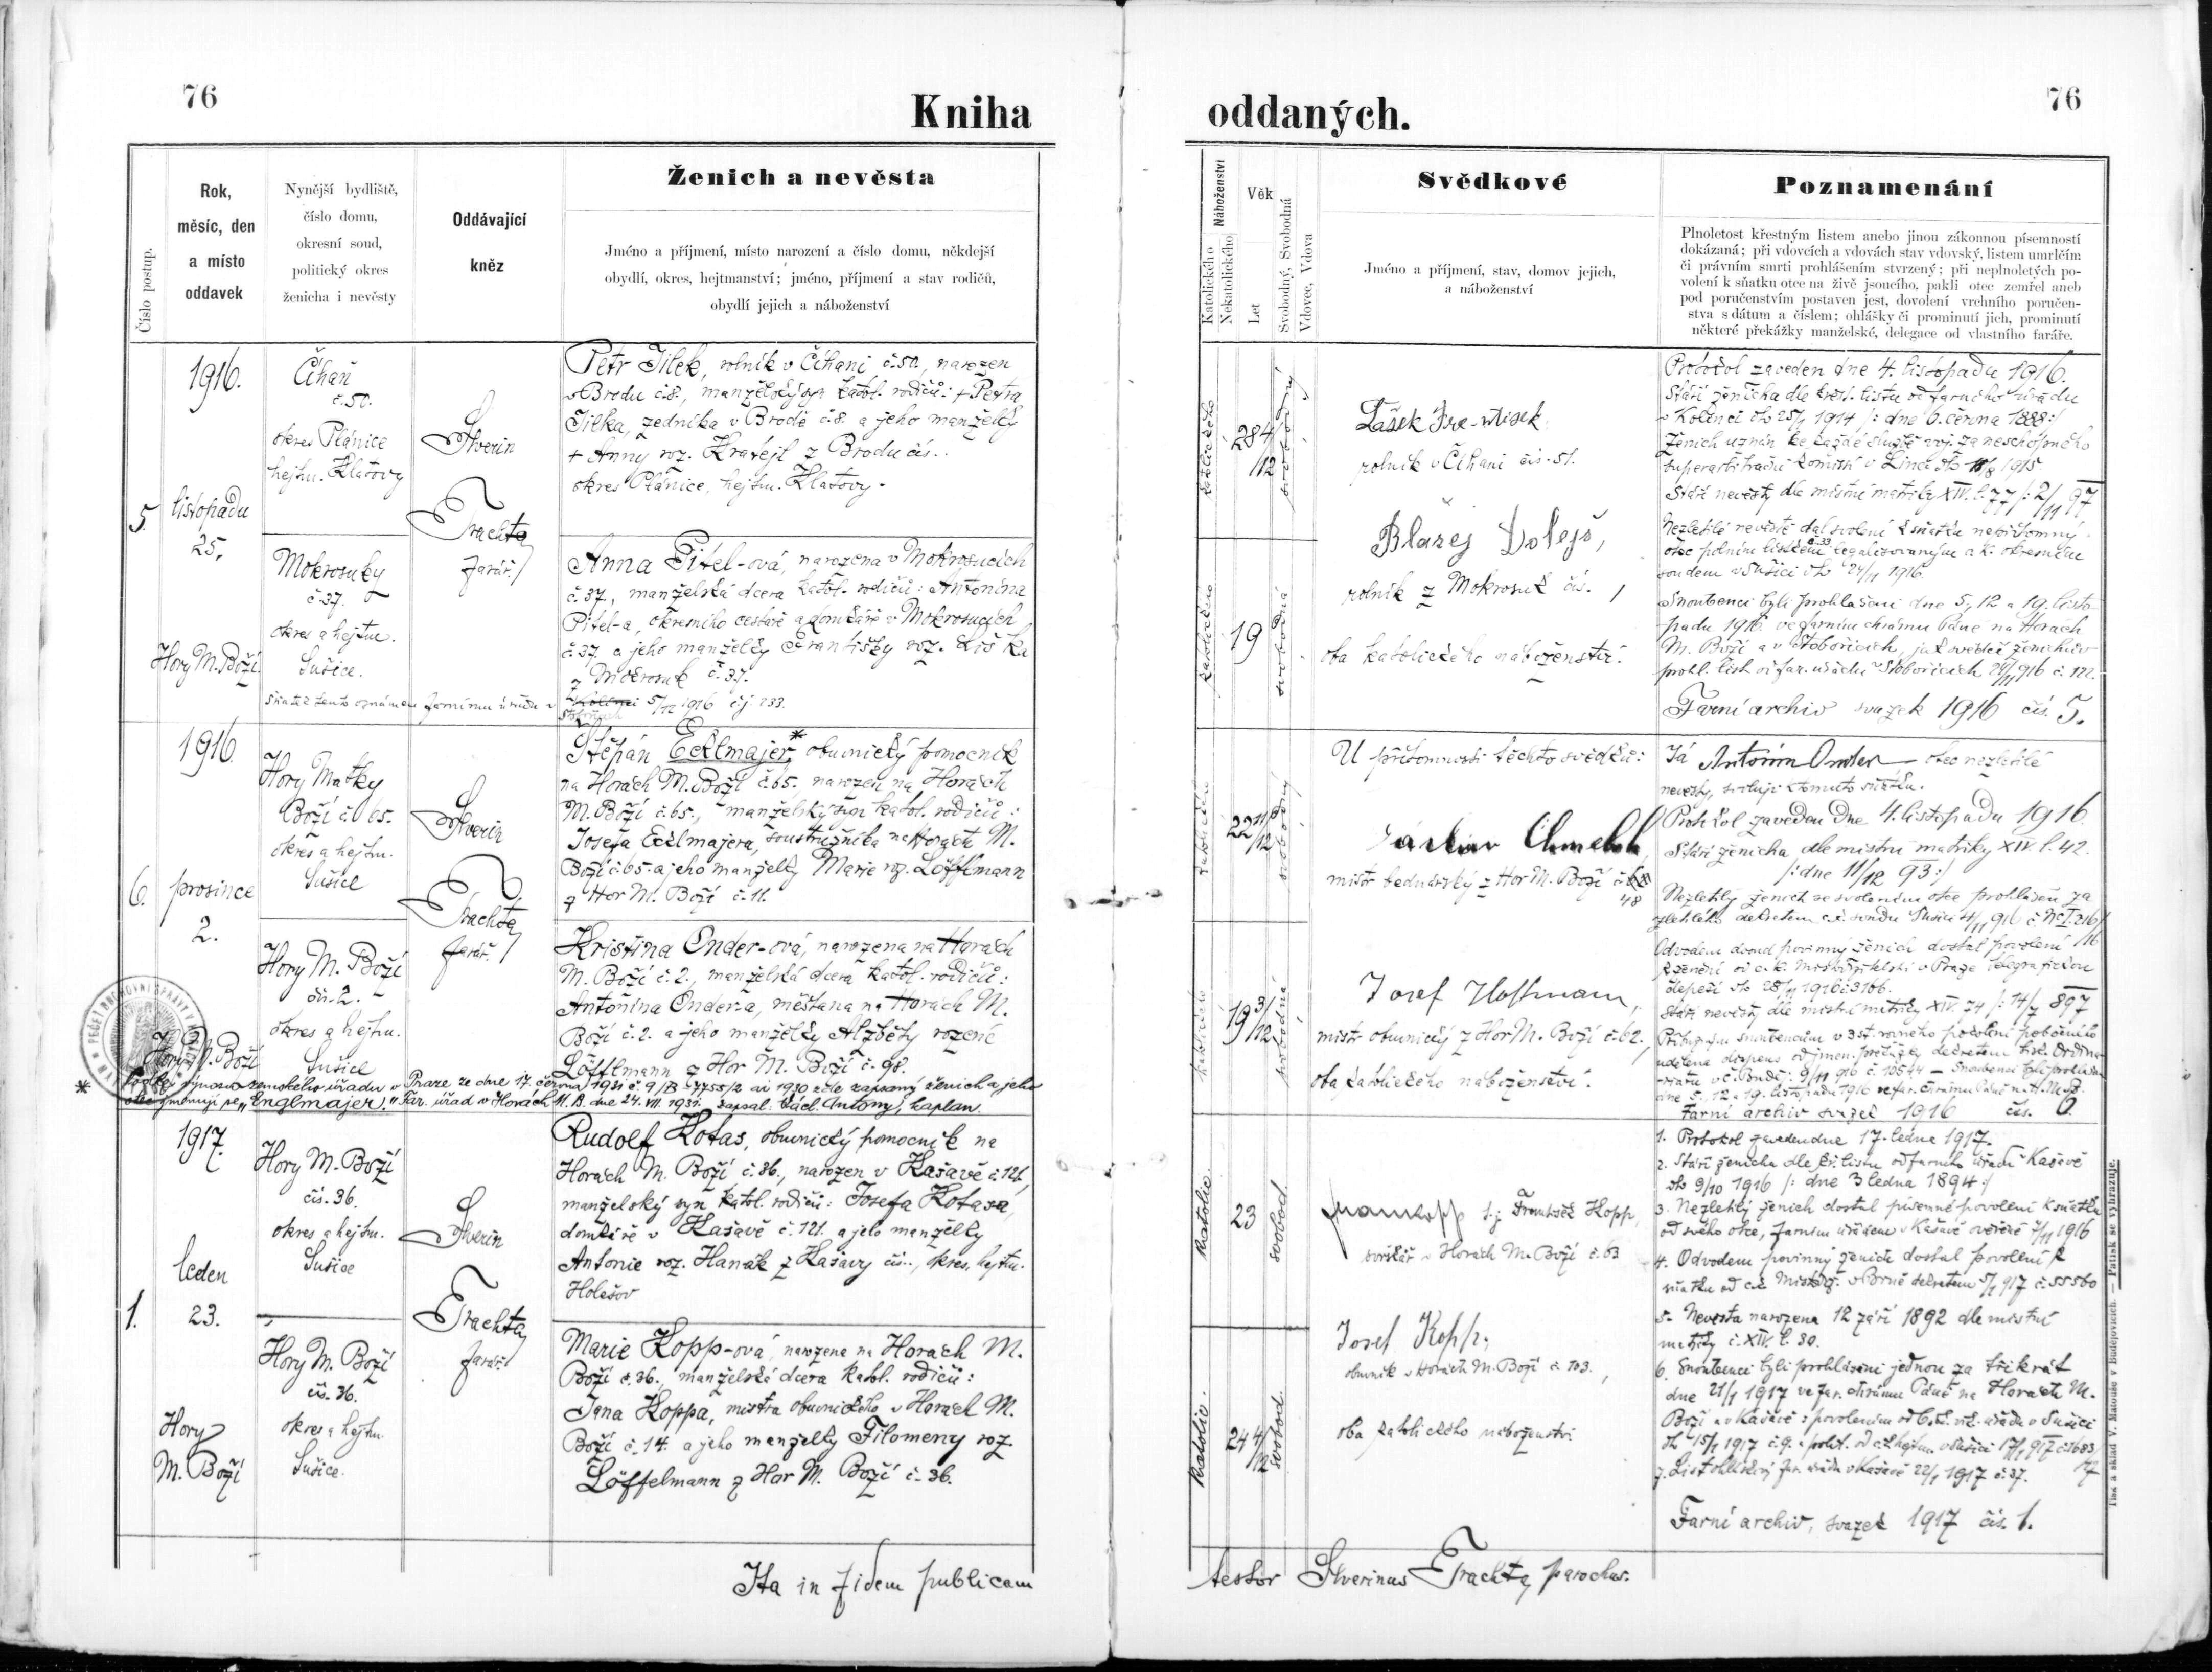 76
Kniha
Číslo postup.
Rok,
měsíc, den
a místo
oddavek
Nynější bydliště,
číslo domu,
okresní soud,
politický okres
ženicha i nevěsty
Oddávající
kněz
Ženich a nevěsta
Jméno a příjmení, místo narození a číslo domu, někdejší
obydlí, okres, hejtmanství; jméno, příjmení a stav rodičů,
obydlí jejich a náboženství
5.
1916.
listopadu
25.
Hory M. Boží
Číhaň
č. 50.
okres Plánice
hejtm. Klatovy
Mokrosuky
č. 37.
okres a hejtm.
Sušice.
Trachta
farář.
Petr Jílek, rolník v Číhani č. 50, narozen
v Brodu č. 8., manželský syn katol. rodičů: + Petra
Jílka, zedníka v Brodě č. 8. a jeho manželky
+ Anny roz. z Brodu čís..
okres Plánice, hejtm. Klatovy.
Anna Pitel-ová, narozena v Mokrosucích
č. 37, manželská dcera katol. rodičů: Antonína
Pitel-a, okresního cestáře a domkáře v Mokrosucích
č. 37. a jeho manželky Františky roz. Liška
z Mokrosuk č. 37.
Sňatek tento oznámen farnímu úřadu v 5/12 1916 č.j. 233.
6.
1916
prosince
2.
Hory M. Boží
Hory Matky
Boží č. 65.
okres a hejtm.
Sušice
Hory M. Boží
čís. 2.
okres a hejtm.
Sušice
Trachta
farář.
Štěpán Ecklmajer,* obuvnický pomocník
na Horách M. Boží č. 65., narozen na Horách
M. Boží č. 65., manželský syn katol. rodičů:
Josefa Ecklmajera, soustružníka na Horách M.
Boží č. 65. a jeho manželky Marie roz. Löfflmann
z Hor M. Boží č. 11.
Kristina Onder-ová, narozena na Horách
M. Boží č. 2., manželská dcera katol. rodičů:
Antonína Onder-a, měšťana na Horách M.
Boží č. 2. a jeho manželky Alžběty rozené
Löfflmann z Hor M. Boží č. 98.
* zemského úřadu v Praze ze dne 17. června 1931 č. 9/B ai 1930 zde zapsaný ženich a jeho
otec jmenují se „Englmajer." Far. úřad v Horách M. B. dne 24. VII. 1931. zapsal: Antony, kaplan.
1.
1917.
leden
23.
Hory
M. Boží
Hory M. Boží
čís. 36.
okres a hejtm.
Sušice
Hory M. Boží
čís. 36.
okres a hejtm.
Sušice.
Trachta
farář
Rudolf Kotas, obuvnický pomocník na
Horách M. Boží č. 36., narozen v Kašavě č. 121,
manželský syn katol. rodičů: Josefa Kotasa,
domkáře v Kašavě č. 121. a jeho manželky
Antonie roz. Hanák z Kašavy čís.., okres, hejtm.
Holešov
Marie Kopp-ová, narozena na Horách M.
Boží č. 36., manželská dcera katol. rodičů:
Jana Koppa, mistra obuvnického v Horách M.
Boží č. 14. a jeho manželky Filomeny roz.
Löffelmann z Hor M. Boží č. 36.
Ita in fidem publicam
76
oddaných.
Náboženství
Katolického
Nekatolického
Věk
Let
Svobodný, Svobodná
Vdovec, Vdova
Svědkové
Jméno a příjmení, stav, domov jejich,
a náboženství
Poznamenání
Plnoletost křestným listem anebo jinou zákonnou písemností
dokázaná; při vdovcích a vdovách stav vdovský, listem umrlčím
či právním smrti prohlášením stvrzený; při neplnoletých po-
volení k sňatku otce na živě jsoucího, pakli otec zemřel aneb
pod poručenstvím postaven jest, dovolení vrchního poručen-
stva s dátum a číslem; ohlášky či prominutí jich, prominutí
některé překážky manželské, delegace od vlastního faráře.
katolického
28 4/12
svobodný
katolického
19
svobodná
rolník v Číhani čís. 51.
Blažej Dolejš,
rolník z Mokrosuk čís. 1
oba katolického náboženství.
Protokol zaveden dne 4. listopadu 1916.
Stáří ženicha dle křest. listu od farního úřadu
v Kolinci 1914 /: dne 6. června 1888:/
Stáří nevěsty dle místní matriky XIV. l. 77 /: 2/11 97
Nezletilé nevěstě dal svolení k sňatku nepřítomný
soudem v Sušici 24/11 1916.
Snoubenci byli prohlášeni dne 5., 12. a 19. listo-
padu 1916. ve farním chrámu Páně na Horách
M. Boží a v
Farní archiv svazek 1916 čís. 5.
katolického
22 11/12
svobodný
katolického
19 3/12
svobodná
U přítomnosti těchto svědků:
mistr bednářský z Hor M. Boží č.
48
Josef Hoffmann,
mistr obuvnický z Hor M. Boží č. 62.,
oba katolického náboženství.
Já Antonín Onder otec nezletilé
nevěsty, svoluji k tomuto sňatku.
Protokol zaveden dne 4. listopadu 1916.
Stáří ženicha dle místní matriky XIV. l. 42.
/: dne 11/12 93:/
Nezletilý ženich se svolením otce prohlášen za
Stáří nevěsty dle místní matriky XIV. 74 /: 14/7 897
Farní archiv svazek 1916 čís. 6.
Katolic.
23
svobod.
Katolic.
24 4/12
svobod.
t.j. František Kopp,
v Horách M. Boží č. 63
Josef Kopp,
obuvník v Horách M. Boží č. 103.,
oba katolického náboženství
1. Protokol zaveden dne 17. ledna 1917.
2. Stáří ženicha dle kř. listu od farního úřadu Kašavě
9/10 1916 /: dne 3 ledna 1894:/
3. Nezletilý ženich dostal písemné povolení k sňatku
od svého otce, farním úřadem v Kašavě ověřené 1916
4. Odvodem povinný ženich dostal povolení k
sňatku od c.k. v Brně dekretem 5/1 917 č. 55560
5. Nevěsta narozena 12 září 1892 dle místní
matriky č. XIV. l. 30.
6. Snoubenci byli prohlášeni jednou za třikrát
dne 21/1 1917 ve far. chrámu Páně na Horách M.
Boží a v Kašavě s povolením
7. List ohláškový far. úřadu v Kašavě 22/1 1917 č. 37.
Farní archiv, svazek 1917 čís. 1.
Tisk a sklad V. Matouše v Budějovicích. — Patisk se vyhrazuje.
testor Trachta, parochus.